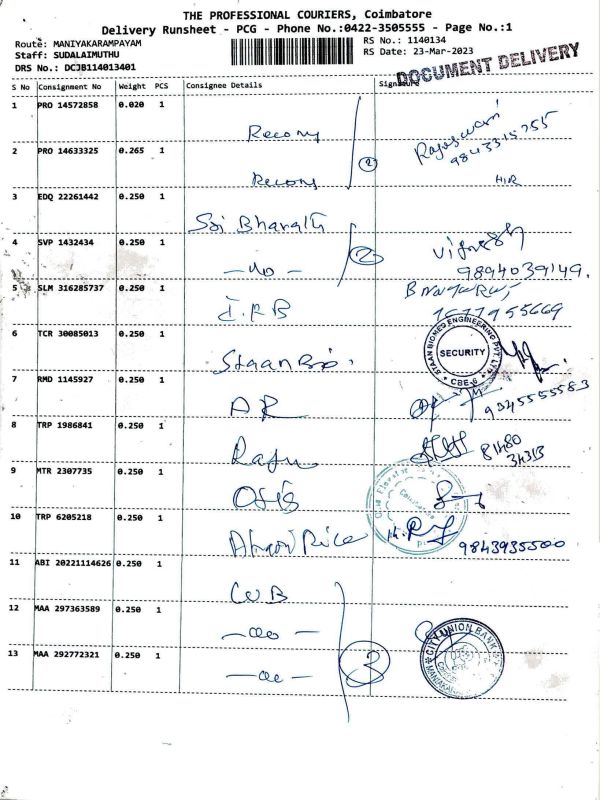 THE PROFESSIONAL COURIERS, Coimbatore
Delivery Runsheet - PCG - Phone No.:0422-3505555 - Page No.:1
Route: MANIYAKARAMPAYAM RS No.: 1140134
Staff: SUDALAIMUTHU RS Date: 23-Mar-2023
DRS No.: DCJB114013401
DOCUMENT DELIVERY
S No Consignment No Weight PCS Consignee Details Signature
1 PRO 14572858 0.020 1
2 PRO 14633325 0.265 1
HIR
3 EDQ 22261442 0.250 1
Sri Bharath
4 SVP 1432434 0.250 1
2
9894039149.
5 SLM 316285737 0.250 1
6 TCR 30085013 0.250 1
STAAN BIOMED ENGINEERING PVT LTD
SECURITY
CBE-6
StaanBio.
7 RMD 1145927 0.250 1
AR
8 TRP 1986841 0.250 1
Raju
81480
34313
9 MTR 2307735 0.250 1
Otis
10 TRP 6205218 0.250 1
Rice
9843935500
11 ABI 20221114626 0.250 1
CUB
12 MAA 297363589 0.250 1
— do —
CITY UNION BANK
13 MAA 292772321 0.250 1
— do —
3